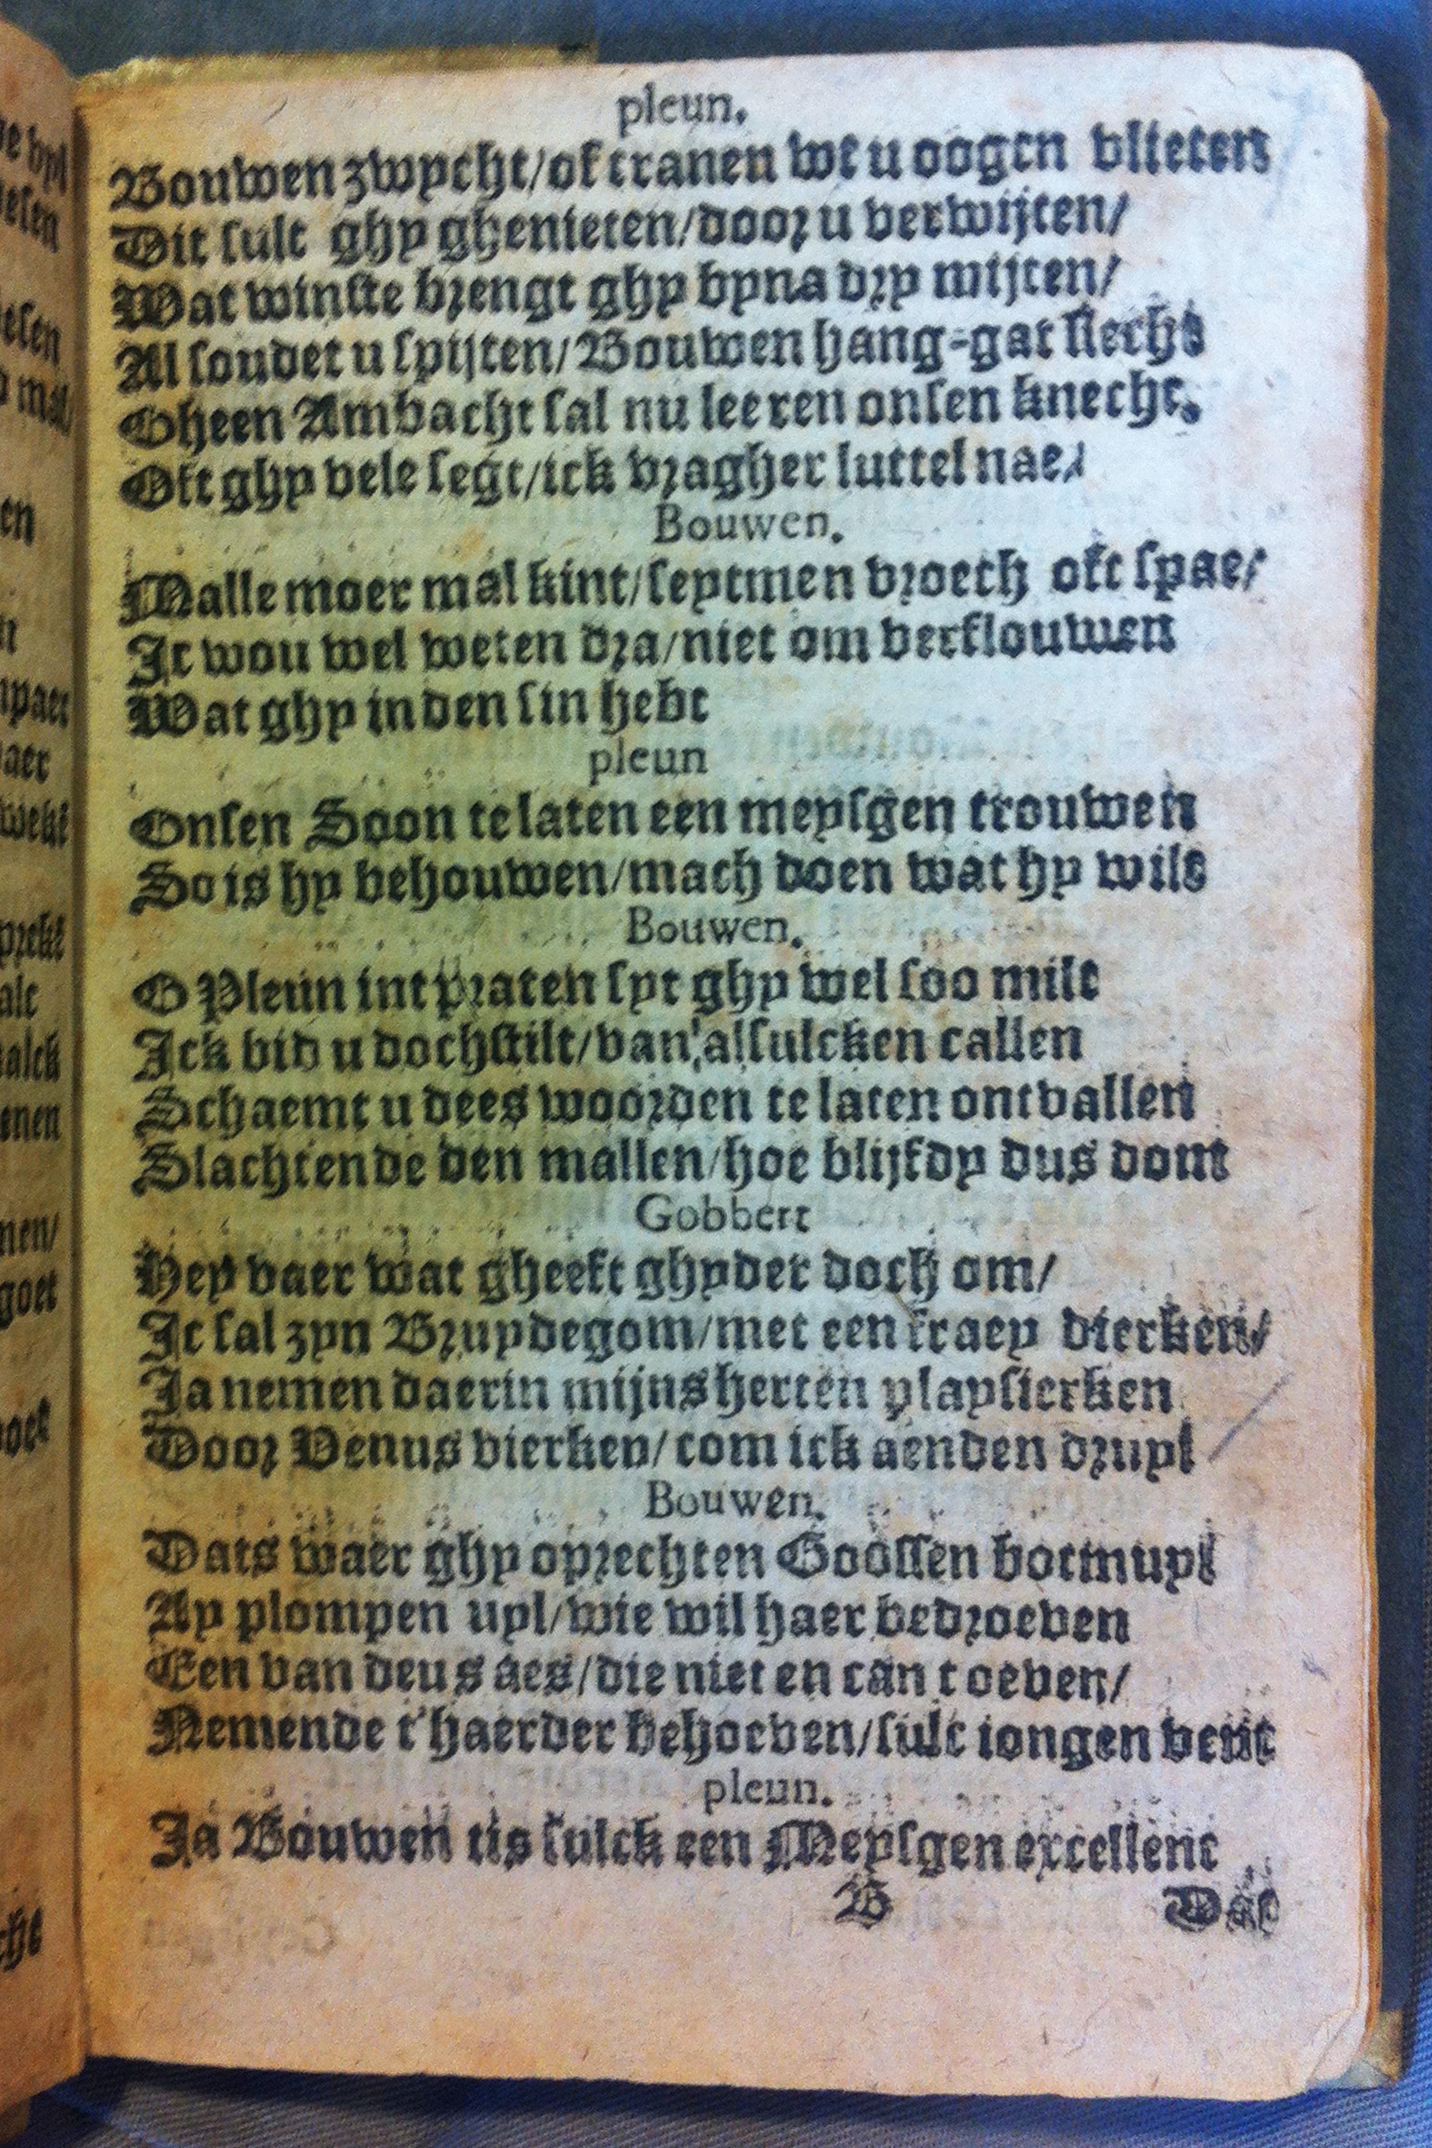 pleun.
Bouwen zwycht/of tranen wt u oogen vlieten
Dit sult ghy ghenieten/door u verwijten/
Wat winste brengt ghy byna dry mijten/
Al soudet u spijten/Bouwen hang-gat slecht
Gheen Ambacht sal nu leeren onsen knecht.
Oft ghy vele segt/ick vragher luttel nae/
Bouwen.
Malle moer mal kint/seytmen vroech oft spae/
Ic wou wel weten dra/niet om verflouwen
Wat ghy in den sin hebt
pleun
Onsen Soon te laten een meysgen trouwen
So is hy behouwen/mach doen wat hy wilt
Bouwen.
O Pleun int praten syt ghy wel soo milt
Ick bid u doch stilt/van alsulcken callen
Schaemt u dees woorden te laten ontvallen
Slachtende den mallen/hoe blijfdy dus dom
Gobbert
Hey vaer wat gheeft ghyder doch om/
Ic sal zyn Bruydegom/met een fraey dierken/
Ja nemen daerin mijns herten playsierken
Door Venus vierken/com ick aenden druyt
Bouwen.
Dats waer ghy oprechten Goossen botmuyl
Ay plompen uyl/wie wil haer bedroeven
Een van deus aes/die niet en can toeven/
Nemende t'haerder behoeven/sulc iongen vent
pleun.
Ja Bouwen tis sulck een Meysgen excellent
B
Dat